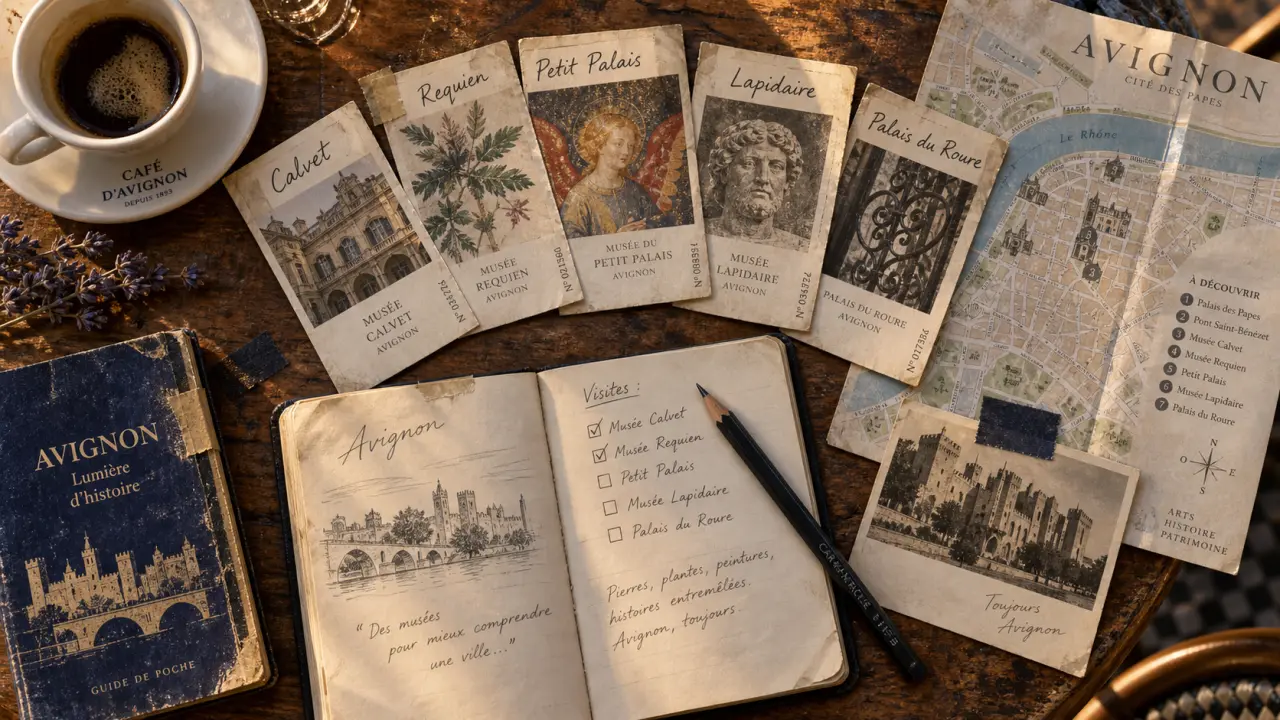 CAFÉ
D'AVIGNON
DEPUIS 1853
Calvet
MUSÉE
CALVET
AVIGNON
Requien
MUSÉE
REQUIEN
AVIGNON
Petit Palais
MUSÉE DU
PETIT PALAIS
AVIGNON
Lapidaire
MUSÉE
LAPIDAIRE
AVIGNON
Palais du Roure
PALAIS DU ROURE
AVIGNON
AVIGNON
CITÉ DES PAPES
Le Rhône
À DÉCOUVRIR
1 Palais des Papes
2 Pont Saint-Bénézet
3 Musée Calvet
4 Musée Requien
5 Petit Palais
6 Musée Lapidaire
7 Palais du Roure
N
O E
S
ARTS
HISTOIRE
PATRIMOINE
AVIGNON
Lumière
d'histoire
GUIDE DE POCHE
Avignon
" Des musées
pour mieux comprendre
une ville... "
Visites :
Musée Calvet
Musée Requien
Petit Palais
Musée Lapidaire
Palais du Roure
Pierres, plantes, peintures,
histoires entremêlées.
Avignon, toujours.
Toujours
Avignon